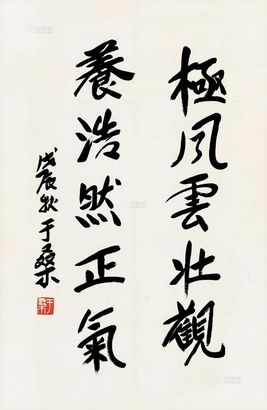 極風雲壯觀
養浩然正氣
戊辰秋于桑